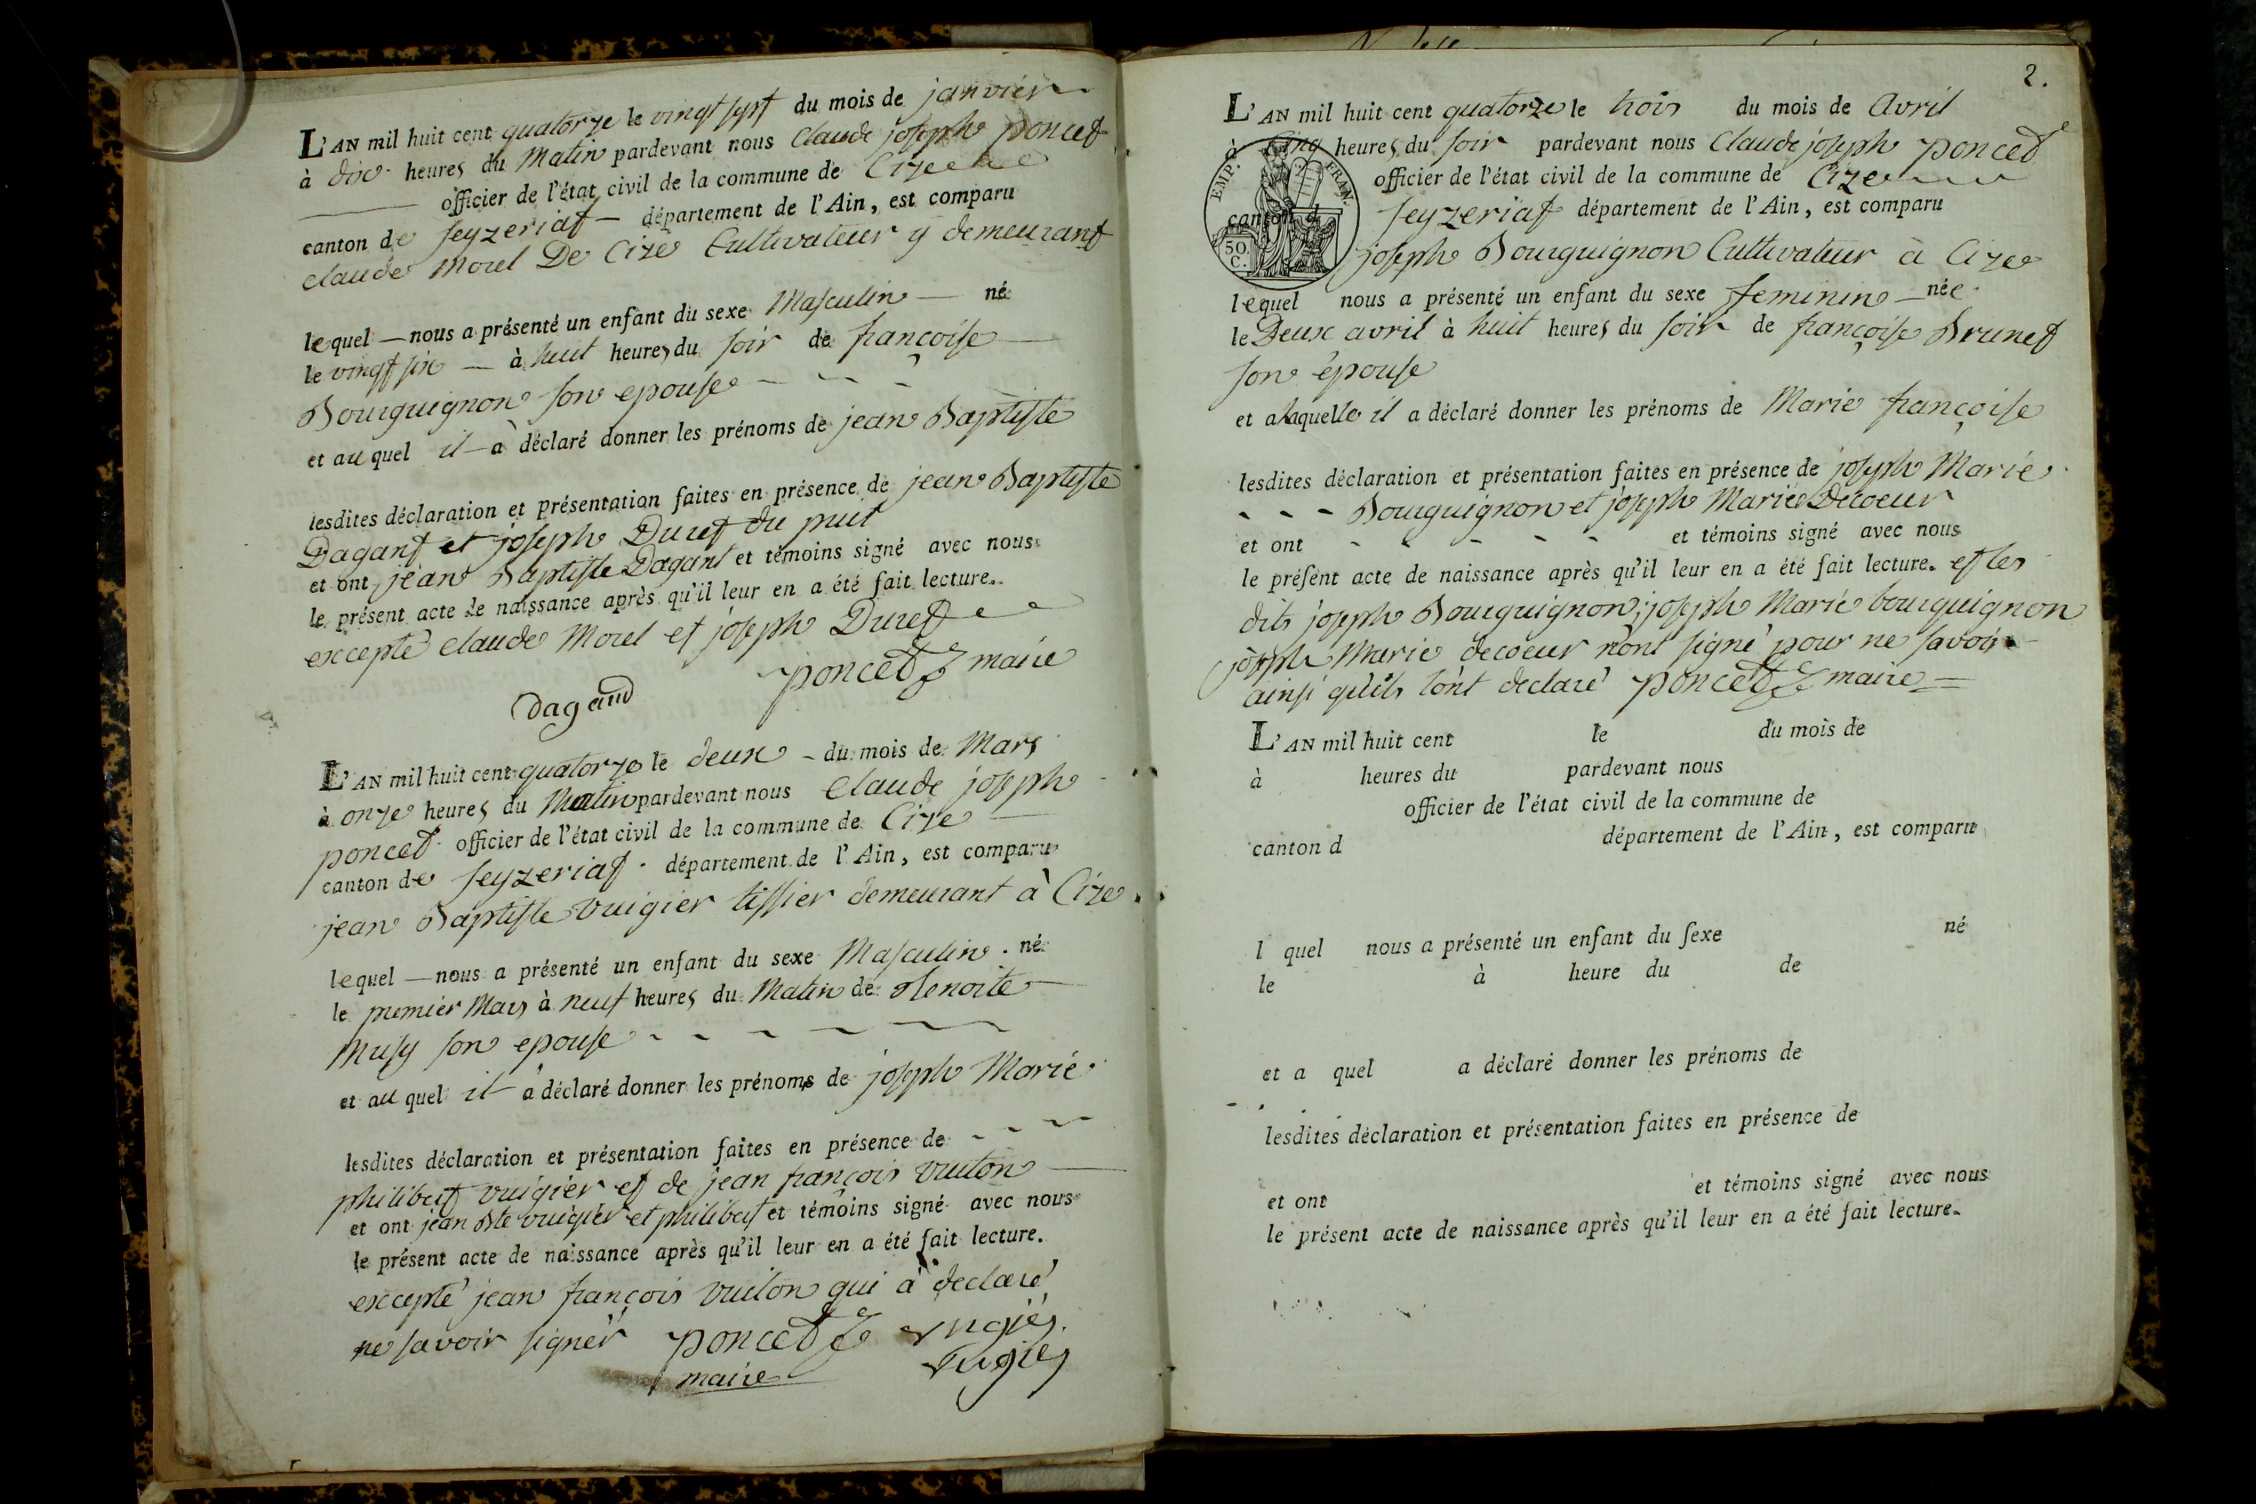 L'AN mil huit cent quatorze le vingt sept du mois de janvier
à dix heures du Matin pardevant nous Claude joseph poncet
officier de l'état civil de la commune de Cize
canton de seyzeriat département de l'Ain, est comparu
claude Morel De Cize Cultivateur y demeurant
lequel nous a présenté un enfant du sexe Masculin né
le vingt six à huit heures du soir de françoise
Bourguignon son epouse
et au quel il à déclaré donner les prénoms de jean Baptiste
lesdites déclaration et présentation faites en présence de jean Baptiste
Dagant et joseph Duret du puit
et ont jean Baptiste Dagant et témoins signé avec nous
le présent acte de naissance après qu'il leur en a été fait lecture.
excepté claude Morel et joseph Duret
poncet maire
Dagand
L'AN mil huit cent quatorze le deux du mois de Mars
à onze heures du Matin pardevant nous Claude joseph
poncet officier de l'état civil de la commune de Cize
canton de seyzeriat département de l'Ain, est comparu
jean Baptiste vuigier tissier demeurant à Cize
lequel nous a présenté un enfant du sexe Masculin né
le premier Mars à neuf heures du Matin de Benoite
Musy son epouse
et au quel il à déclaré donner les prénoms de joseph Marie
lesdites déclaration et présentation faites en présence de
philibert vuigier et de jean françois vuiton
et ont jean Bte vuigier et philibert et témoins signé avec nous
le présent acte de naissance après qu'il leur en a été fait lecture.
excepté jean françois vuiton qui à declaré
ne savoir signer poncet vugier
maire vugier
2.
L'AN mil huit cent quatorze le trois du mois de Avril
à Cinq heures du soir pardevant nous Claude joseph poncet
officier de l'état civil de la commune de Cize
canton d seyzeriat département de l'Ain, est comparu
EMP. FRAN.
50 C.
joseph Bourguignon Cultivateur à Cize
lequel nous a présenté un enfant du sexe feminin née
le Deux avril à huit heures du soir de françoise Brunet
son épouse
et a laquelle il a déclaré donner les prénoms de Marie françoise
lesdites déclaration et présentation faites en présence de joseph Marie
Bourguignon et joseph Marie Decoeur
et ont et témoins signé avec nous
le présent acte de naissance après qu'il leur en a été fait lecture. et les
dits joseph Bourguignon, joseph Marie bourguignon
joseph Marie decoeur n'ont signé pour ne savoir
ainsi qu'ils l'ont declaré poncet maire
L'AN mil huit cent le du mois de
à heures du pardevant nous
officier de l'état civil de la commune de
canton d département de l'Ain, est comparu
l quel nous a présenté un enfant du sexe né
le à heure du de
et a quel a déclaré donner les prénoms de
lesdites déclaration et présentation faites en présence de
et ont et témoins signé avec nous
le présent acte de naissance après qu'il leur en a été fait lecture.